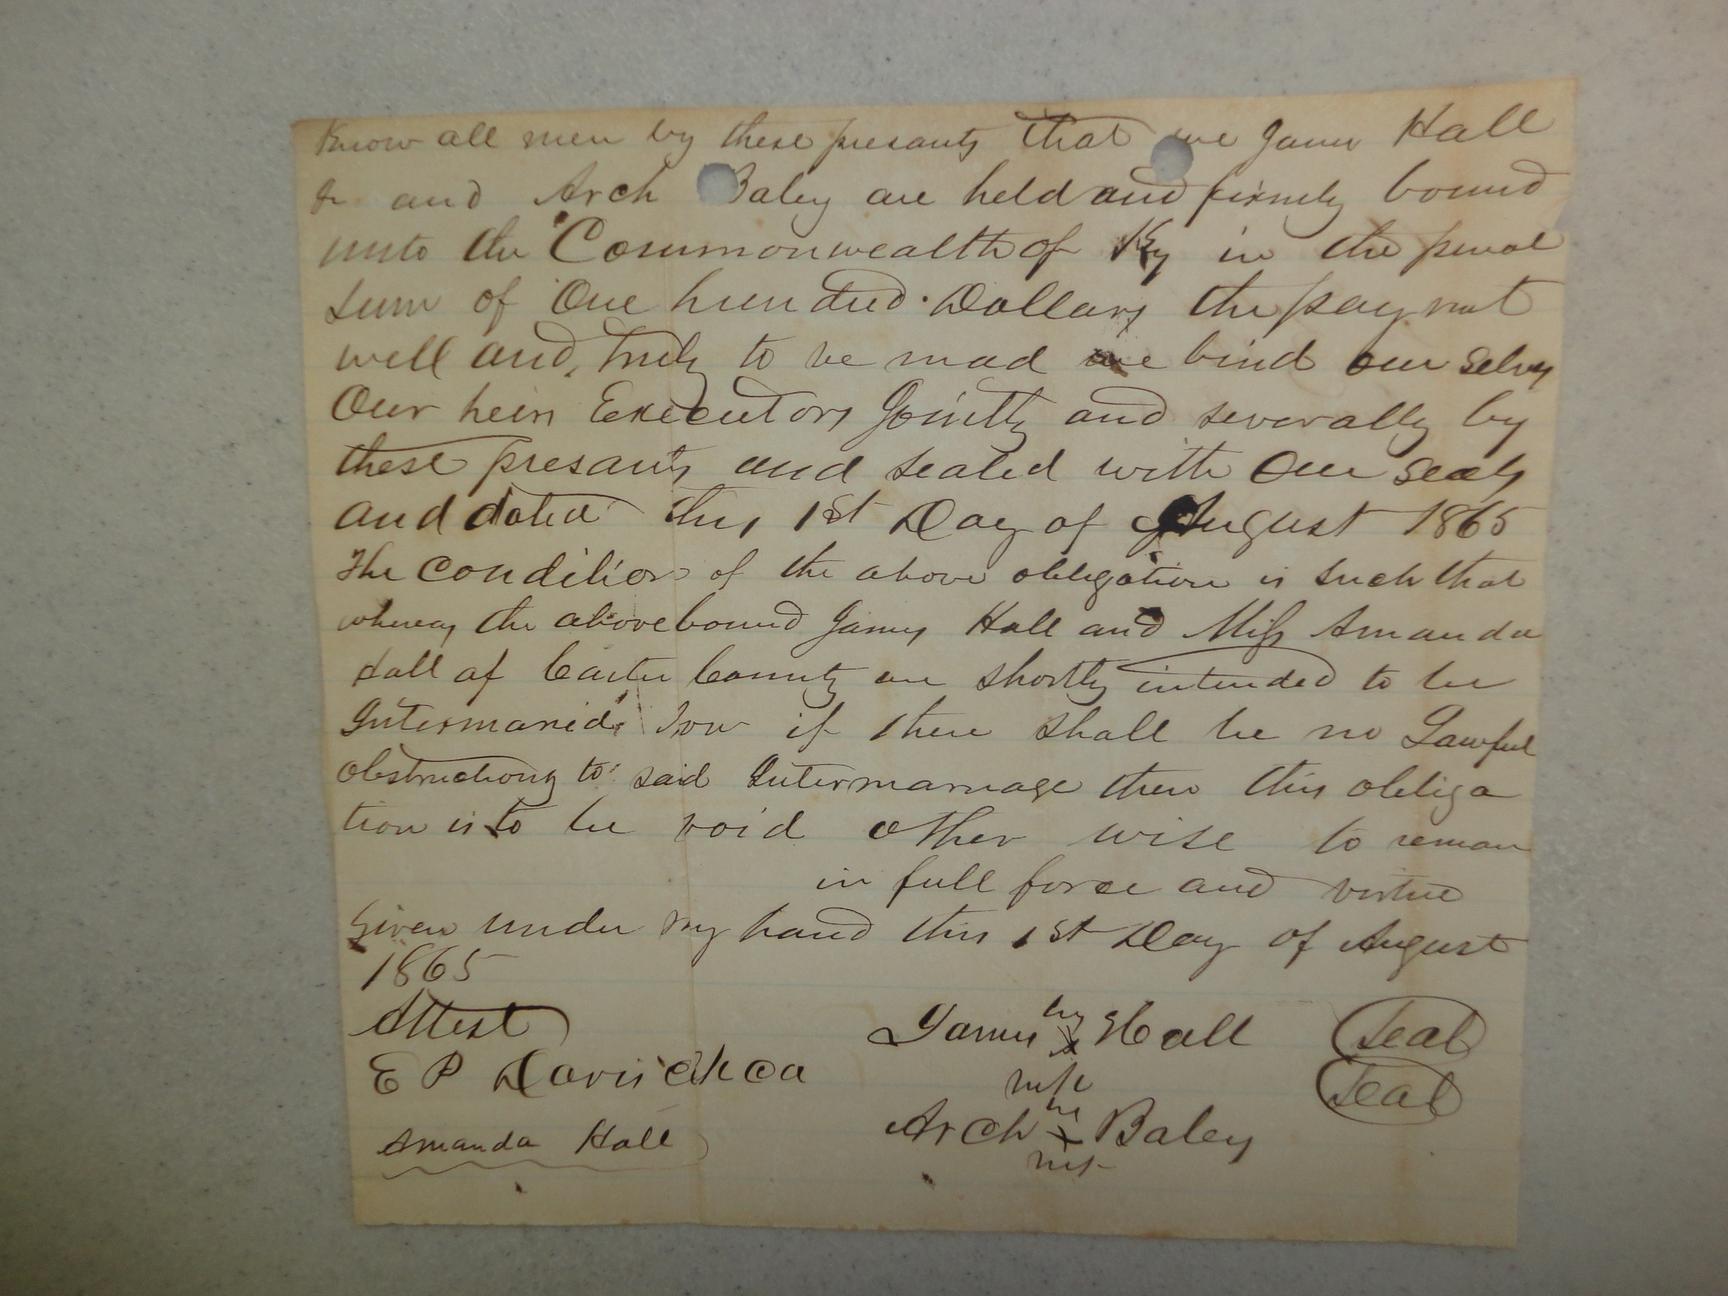 Know all men by these presants that we James Hall
Jr and Arch Baley are held and firmly bound
unto the Commonwealth of Ky in the penal
sum of One hundred Dollars the paymt
well and truly to be mad we bind our selvs
Our heirs Executors Jointly and severally by
these presants and sealed with our seals
and dated this 1st Day of August 1865
The condition of the above obligation is such that
whereas the above bound James Hall and Miss Amanda
Hall of Carter County are shortly intended to be
Intermaried Now if there shall be no Lawful
obstructions to said Intermarriage then this obliga
tion is to be void other wise to remain
in full force and virtue
Given under my hand this 1st Day of August
1865
Attest
James his x Hall Seal
mk
E P Davis
Seal
Arch his x Baley
mk
Amanda Hall